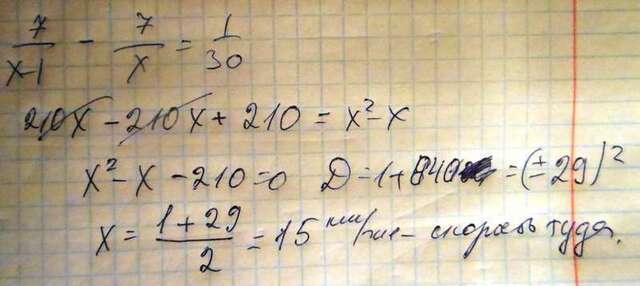 7/(x-1) - 7/x = 1/30
210x - 210x + 210 = x² - x
x² - x - 210 = 0 D = 1 + 840 = (± 29)²
x = (1 + 29)/2 = 15 км/час - скорость туда.